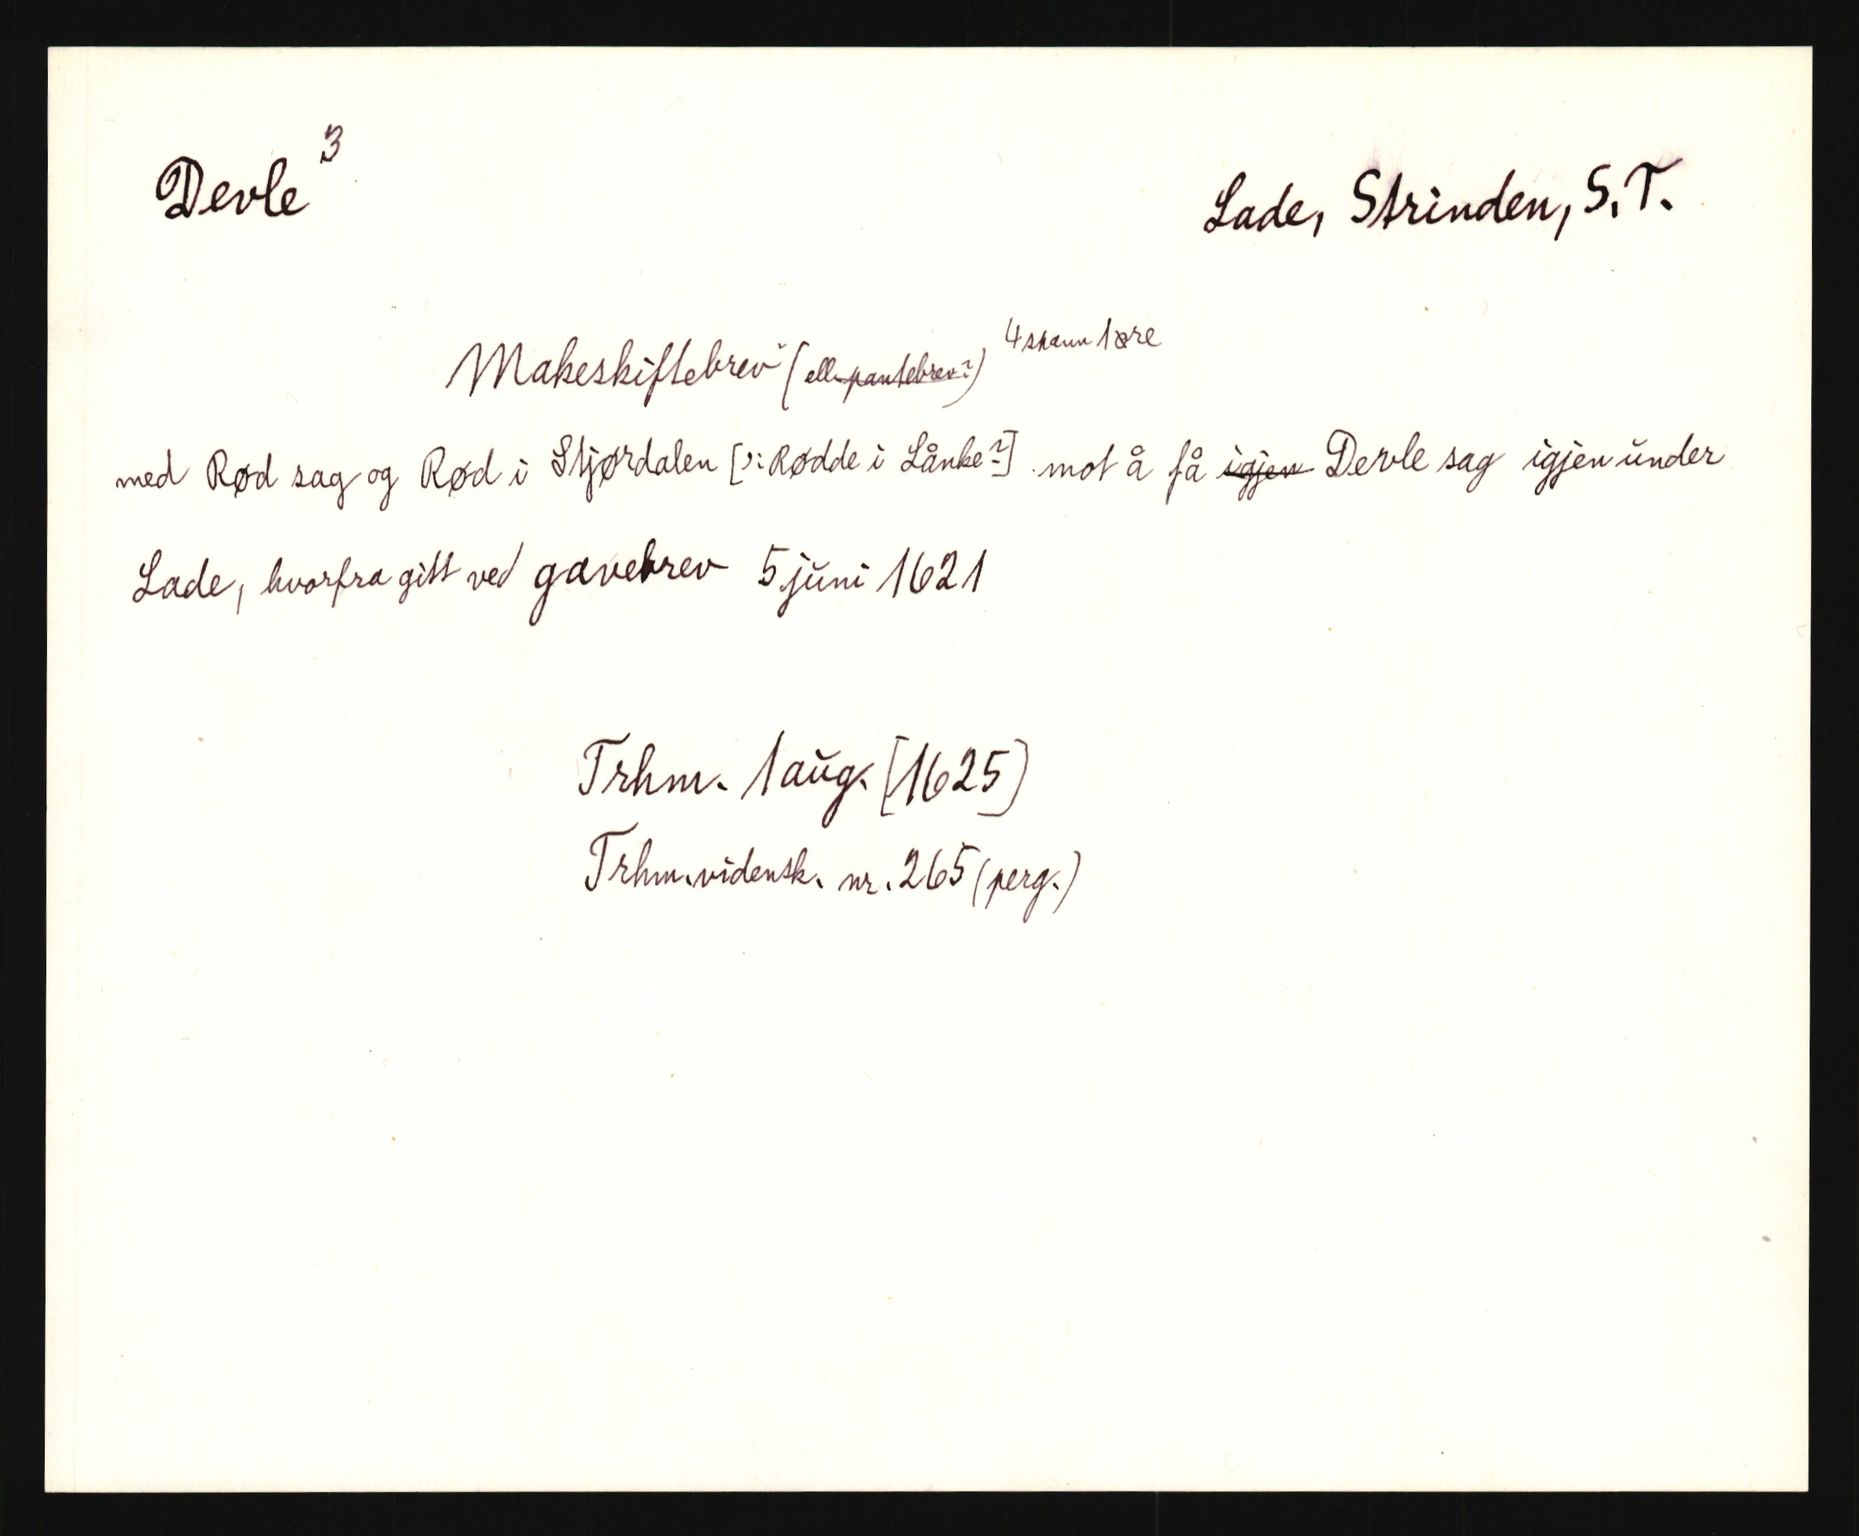 Devle 3
Lade, Strinden, S.T.
Makeskiftebrev (ell. pantebrev?) 4 spann 1 øre
med Rød sag og Rød i Stjørdalen [ɔ: Rødde i Lånke?] mot å få igjen Devle sag igjen under
Lade, hvorfra gitt ved gavebrev 5 juni 1621
Trhm. 1 aug. [1625]
Trhm. vidensk. nr. 265 (perg.)